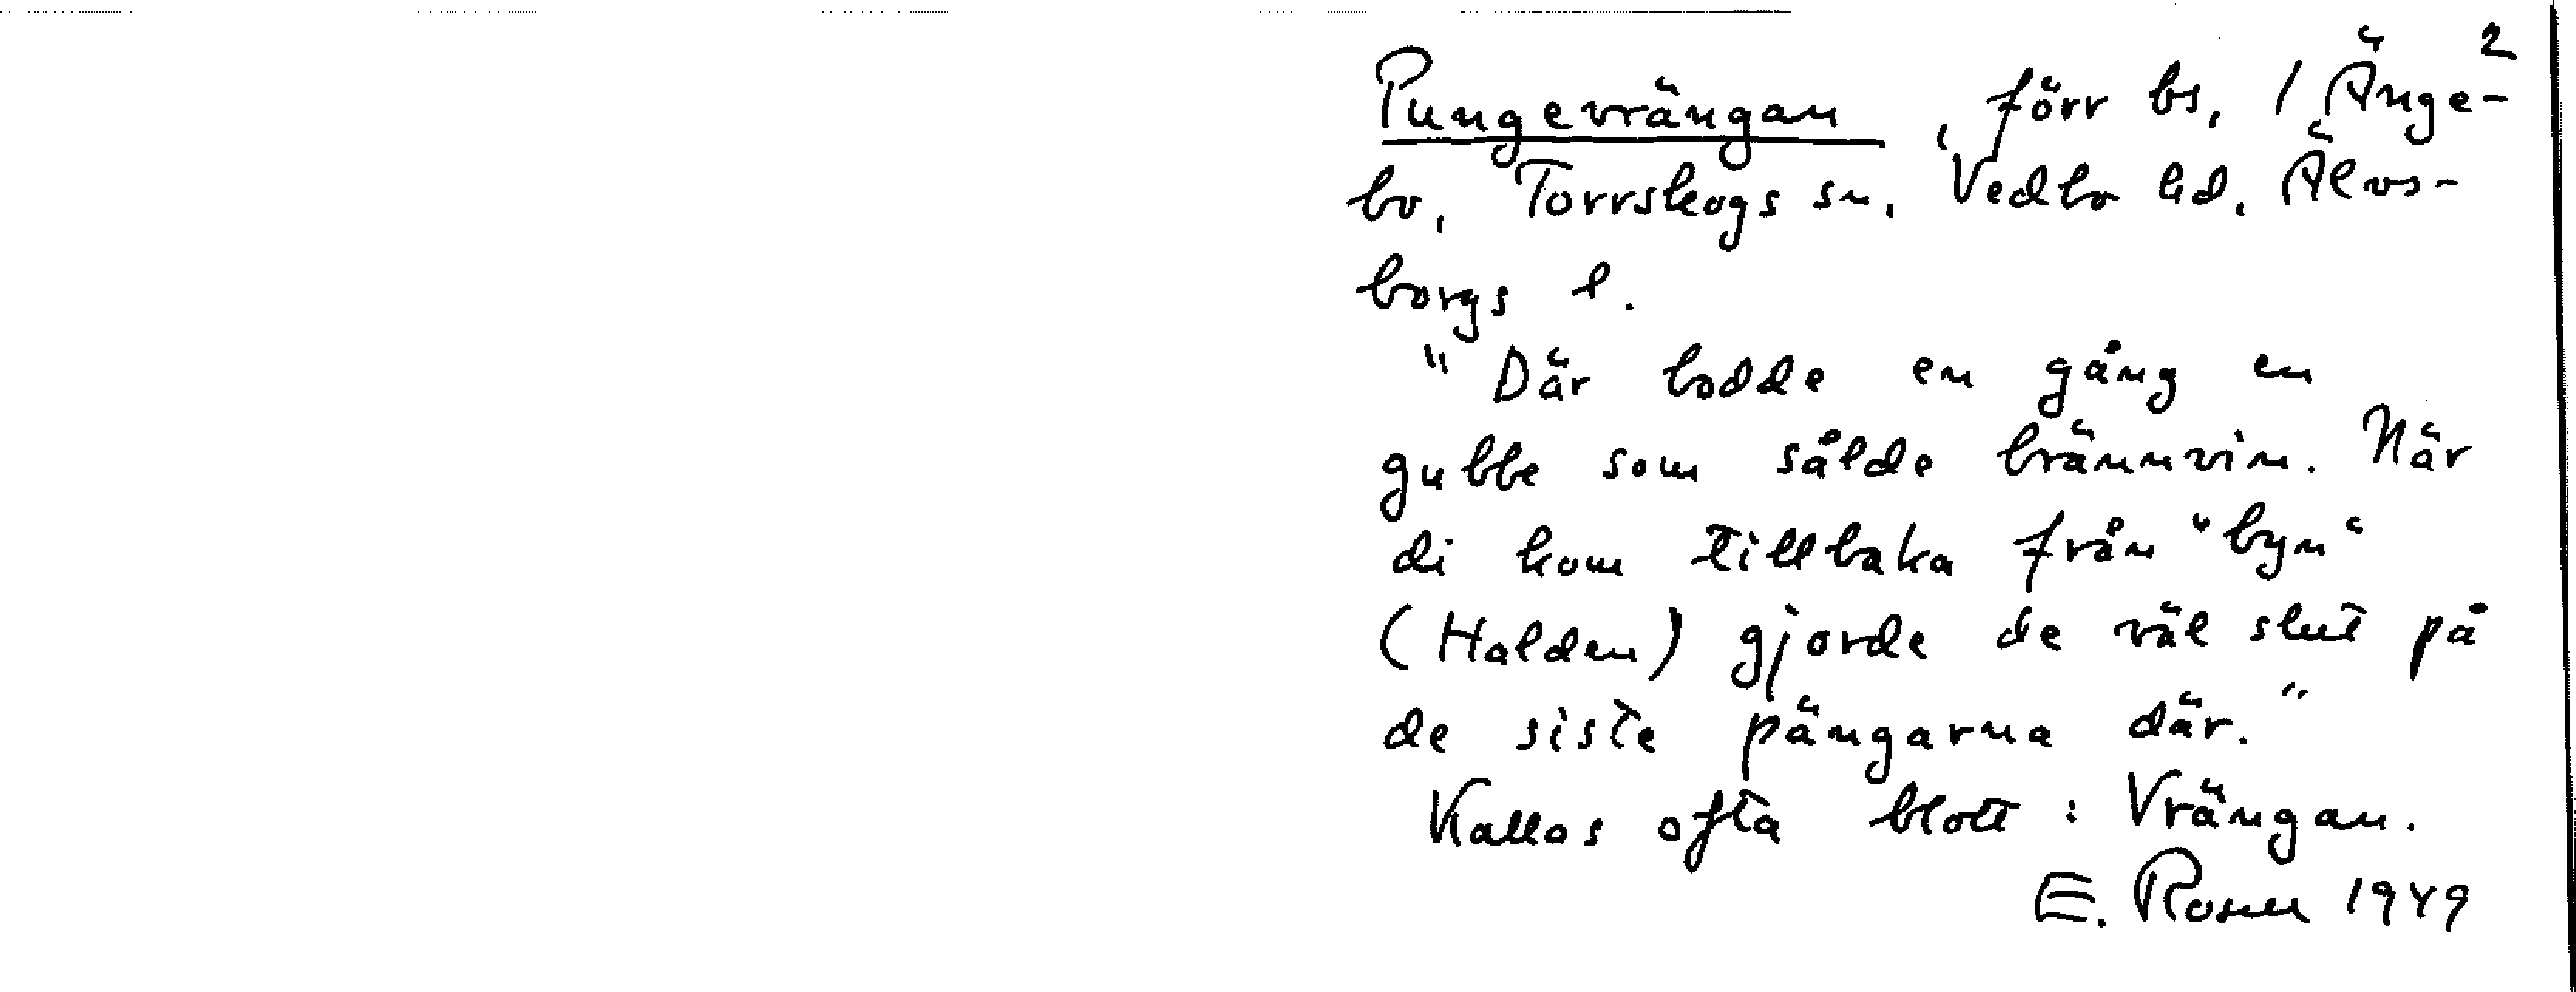 2
Pungevrängan, förr bs, 1 Änge-
bo, Torrskogs sn, Vedbo hd, Älvs-
borgs l.
"Där bodde en gång en
gubbe som sålde brännvin. När
di kom tillbaka från "byn"
(Halden) gjorde de väl slut på
de siste pängarna där."
Kallas ofta blott: Vrängan.
E. Rosell 1949